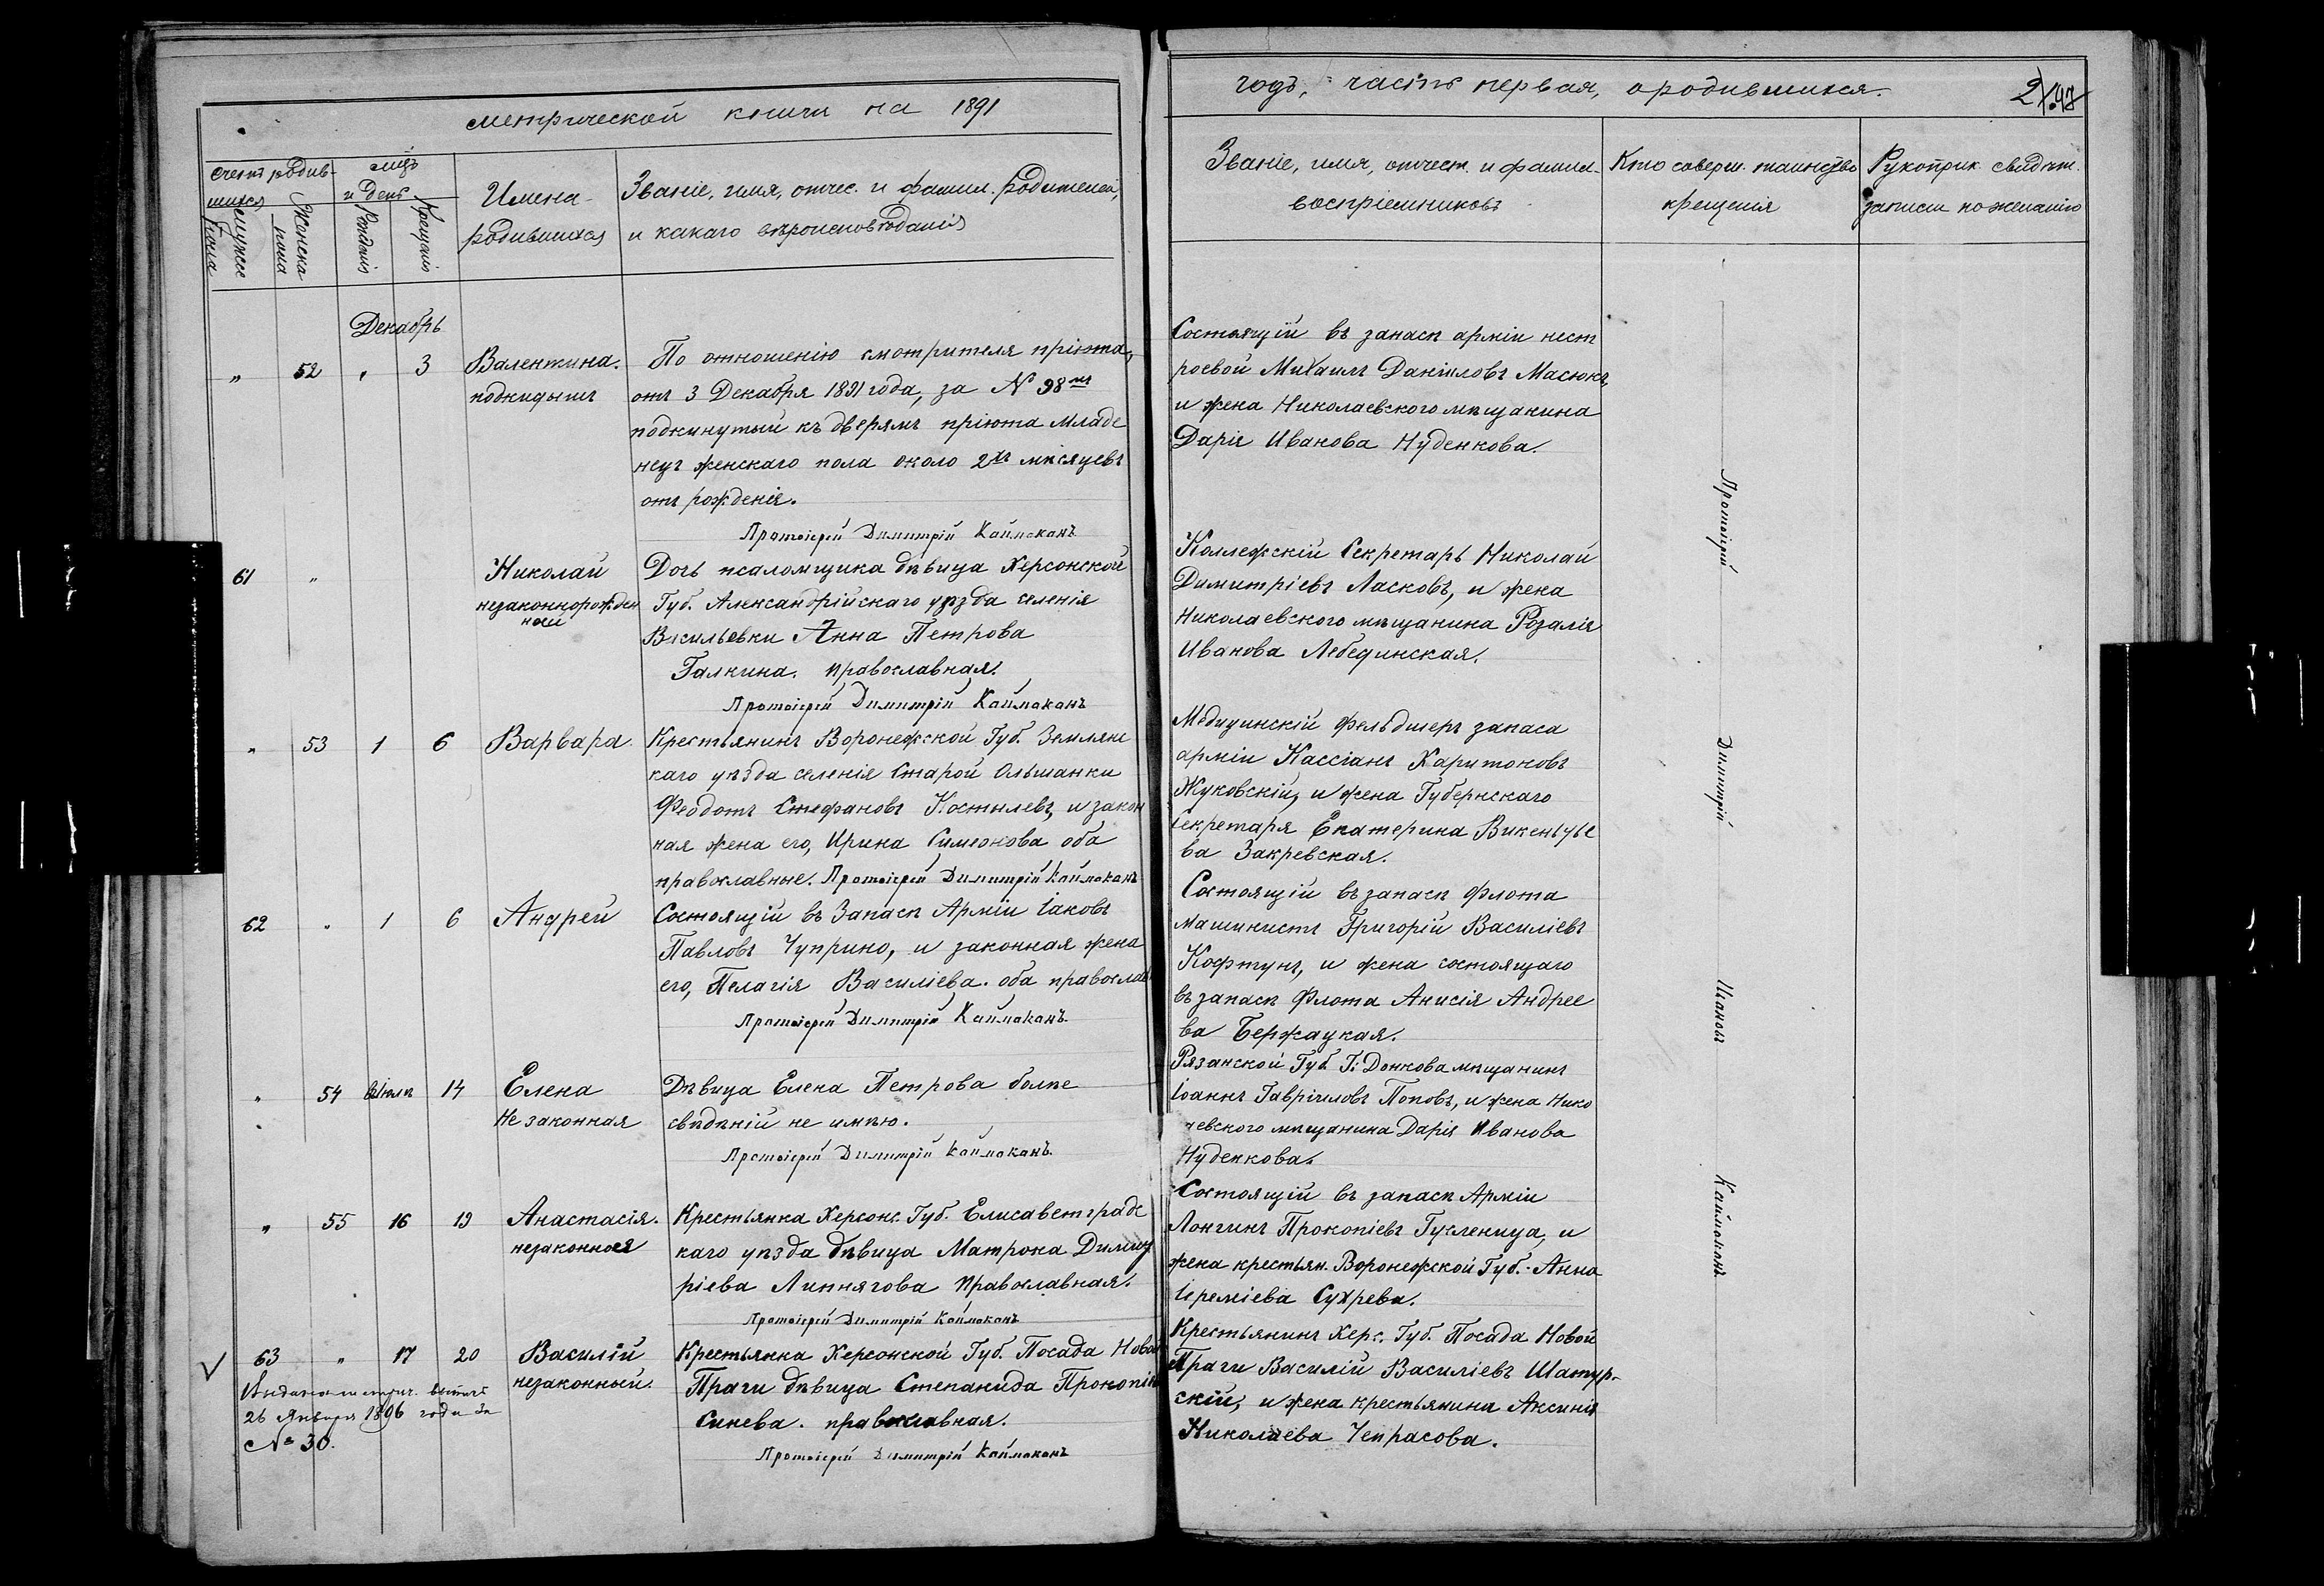 метрической книги на 1891
счетъ родив-
шихся
мужес
пола
Женска
пола
мц҃ъ
и день
Рожденія
Крещенія
Имена
родившихся
Званіе, имя, отчес. и фамил. родителей,
и какаго вѣроисповѣданія
Декабрь
„ 52 „ 3
Валентина.
подкидышъ
По отношенію смотрителя пріюта,
отъ 3 Декабря 1891 года, за № 98мъ
подкинутый къ дверямъ пріюта младе
нецъ женскаго пола около 2хъ мѣсяцевъ
отъ рожденія.
Протоіерей Димитрій Каймаканъ
61 „
Николай
незаконнорожден
ный
Дочь псаломщика дѣвица Херсонской
Губ. Александрійскаго уѣзда селенія
Васильевки Анна Петрова
Галкина. православная.
Протоіерей Димитрій Каймаканъ
„ 53 1 6
Варвара.
Крестьянинъ Воронежской Губ. Землянс
каго уѣзда селенія Старой Ольшанки
Феодотъ Стефановъ Костылевъ, и закон
ная жена его, Ирина Симеонова оба
православные. Протоіерей Димитрій Каймаканъ
62 „ 1 6
Андрей
Состоящій въ Запасѣ Арміи Іаковъ
Павловъ Чуприно, и законная жена
его, Пелагія Василіева. оба православ
Протоіерей Димитрій Каймаканъ
„ 54 14
Елена
Не законная
Дѣвица Елена Петрова болѣе
свѣдѣній не имѣю.
Протоіерей Димитрій Каймаканъ.
„ 55 16 19
Анастасія.
незаконная
Крестьянка Херсонс. Губ. Елисаветградс
каго уѣзда дѣвица Матрона Димит
ріева Липнягова православная.
Протоіерей Димитрій Каймаканъ
63 „ 17 20
Василій
незаконный.
Крестьянка Херсонской Губ. Посада Новой
Праги дѣвица Степанида Прокопіе
Синева. православная.
Протоіерей Димитрій Каймаканъ
Выдана метрич. выпись
26 Января 1896 года за
№ 30.
годъ, часть первая, о родившихся.
247
Званіе, имя, отчест. и фамил.
воспріемниковъ
Кто соверш. таинство
крещенія
Рукоприк. свидѣт.
записи по желанію
Состоящій въ запасѣ арміи нест
роевой Михаилъ Даніиловъ Масюкъ,
и жена Николаевского мѣщанина
Дарія Иванова Нуденкова.
Коллежскій Секретарь Николай
Димитріевъ Ласковъ, и жена
Николаевского мѣщанина Розалія
Иванова Лебединская.
Медицинскій фельдшеръ запаса
арміи Кассіанъ Харитоновъ
Жуковскій, и жена Губернскаго
Секретаря Екатерина Викентье
ва Закревская.
Состоящій въ запасѣ Флота
машинистъ Григорій Василіевъ
Кофтунъ, и жена состоящаго
въ запасѣ Флота Анисія Андрее
ва Бержацкая.
Рязанской Губ. Г. Донкова мѣщанинъ
Іоаннъ Гавріиловъ Поповъ, и жена Нико
левского мѣщанина Дарія Иванова
Нуденкова.
Состоящій въ запасѣ Арміи
Лонгинъ Прокопіевъ Гукленица, и
жена крестьян. Воронежской Губ. Анна
Іереміева Сухрева.
Крестьянинъ Херс. Губ. Посада Новой
Праги Василій Василіевъ Шатур-
скій, и жена крестьянина Аксинія
Николаева Чепрасова.
Протоіерей Димитрій Каймаканъ